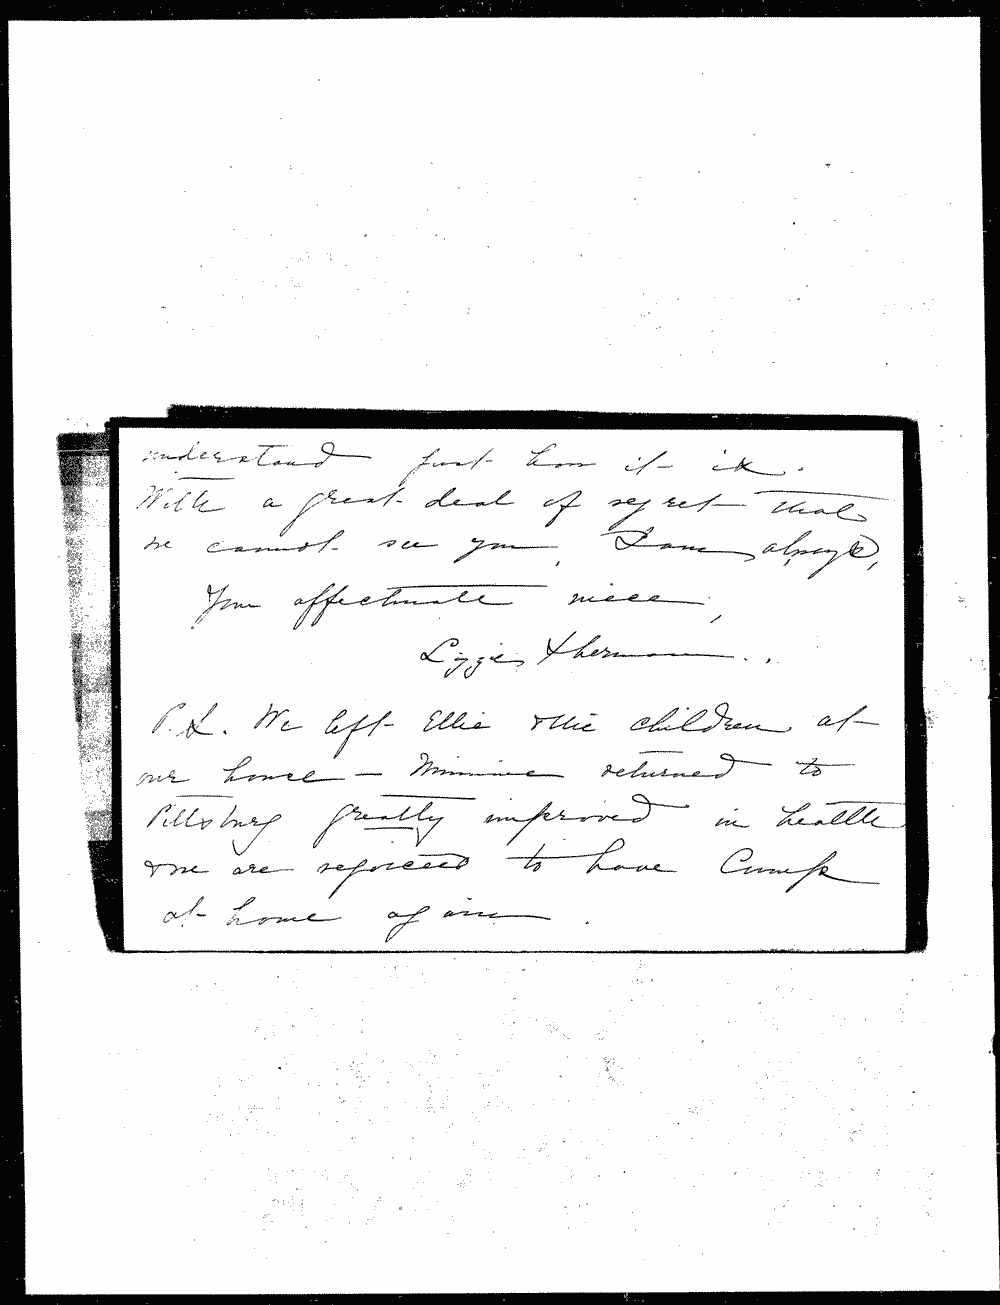 understand just how it is.
With a great deal of regret that
we cannot see you, I am, always,
Your affectionate niece,
Lizzie Sherman..
P.S. We left Ellie & the children at
our house — Minnie returned to
Pittsburg greatly improved in health
& we are rejoiced to have Cump
at home again.